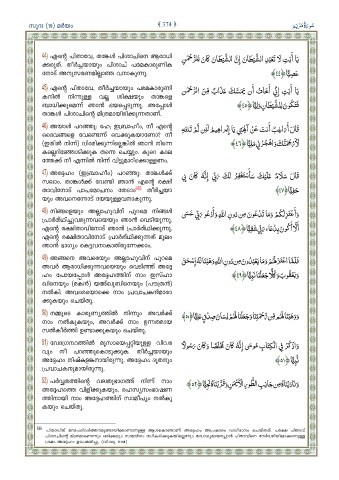 സൂറ: (19) മർയം
﴾ 374 ﴿
سُورَةُ مَرْيَم
44) എന്റെ പിതാവേ, താങ്കൾ പിശാചിനെ ആരാധി
ക്കരുത്. തീർച്ചയായും പിശാച് പരമകാരുണിക
നോട് അനുസരണമില്ലാത്ത വനാകുന്നു.
يَا أَبَتِ لَا تَعْبُدِ الشَّيْطَانَ إِنَّ الشَّيْطَانَ كَانَ لِلرَّحْمَٰنِ
عَصِيًّا ﴿٤٤﴾
45) എന്റെ പിതാവേ, തീർച്ചയായും പരമകാരുണി
കനിൽ നിന്നുള്ള വല്ല ശിക്ഷയും താങ്കളെ
ബാധിക്കുമെന്ന് ഞാൻ ഭയപ്പെടുന്നു. അപ്പോൾ
താങ്കൾ പിശാചിന്റെ മിത്രമായിരിക്കുന്നതാണ്.
يَا أَبَتِ إِنِّي أَخَافُ أَن يَمَسَّكَ عَذَابٌ مِّنَ الرَّحْمَٰنِ
فَتَكُونَ لِلشَّيْطَانِ وَلِيًّا ﴿٤٥﴾
46) അയാൾ പറഞ്ഞു: ഹേ; ഇബ്രാഹീം, നീ എന്റെ
ദൈവങ്ങളെ വേണ്ടെന്ന് വെക്കുകയാണോ? നീ
(ഇതിൽ നിന്ന്) വിരമിക്കുന്നില്ലെങ്കിൽ ഞാൻ നിന്നെ
കല്ലെറിഞ്ഞോടിക്കുക തന്നെ ചെയ്യും. കുറെ കാല
ത്തേക്ക് നീ എന്നിൽ നിന്ന് വിട്ടുമാറിക്കൊള്ളണം.
قَالَ أَرَاغِبٌ أَنتَ عَنْ آلِهَتِي يَا إِبْرَاهِيمُ لَئِن لَّمْ تَنتَهِ
لَأَرْجُمَنَّكَ وَاهْجُرْنِي مَلِيًّا ﴿٤٦﴾
47) അദ്ദേഹം (ഇബ്രാഹീം) പറഞ്ഞു: താങ്കൾക്ക്
സലാം. താങ്കൾക്ക് വേണ്ടി ഞാൻ എന്റെ രക്ഷി
താവിനോട് പാപമോചനം തേടാം. തീർച്ചയാ
യും അവനെന്നോട് ദയയുള്ളവനാകുന്നു.
قَالَ سَلَامٌ عَلَيْكَ سَأَسْتَغْفِرُ لَكَ رَبِّي إِنَّهُ كَانَ بِي
حَفِيًّا ﴿٤٧﴾
48) നിങ്ങളെയും അല്ലാഹുവിന് പുറമെ നിങ്ങൾ
പ്രാർത്ഥിച്ചുവരുന്നവയെയും ഞാൻ വെടിയുന്നു.
എന്റെ രക്ഷിതാവിനോട് ഞാൻ പ്രാർത്ഥിക്കുന്നു.
എന്റെ രക്ഷിതാവിനോട് പ്രാർത്ഥിക്കുന്നത് മൂലം
ഞാൻ ഭാഗ്യം കെട്ടവനാകാതിരുന്നേക്കാം.
وَأَعْتَزِلُكُمْ وَمَا تَدْعُونَ مِن دُونِ اللَّهِ وَأَدْعُو رَبِّي عَسَىٰ
أَلَّا أَكُونَ بِدُعَاءِ رَبِّي شَقِيًّا ﴿٤٨﴾
49) അങ്ങനെ അവരെയും അല്ലാഹുവിന് പുറമെ
അവർ ആരാധിക്കുന്നവയെയും വെടിഞ്ഞ് അദ്ദേ
ഹം പോയപ്പോൾ അദ്ദേഹത്തിന് നാം ഇസ്ഹാ
ഖിനെയും (മകൻ) യഅ്ഖൂബിനെയും (പൗത്രൻ)
നൽകി. അവരെയൊക്കെ നാം പ്രവാചകൻമാരാ
ക്കുകയും ചെയ്തു.
فَلَمَّا اعْتَزَلَهُمْ وَمَا يَعْبُدُونَ مِن دُونِ اللَّهِ وَهَبْنَا لَهُ إِسْحَاقَ
وَيَعْقُوبَ وَكُلًّا جَعَلْنَا نَبِيًّا ﴿٤٩﴾
50) നമ്മുടെ കാരുണ്യത്തിൽ നിന്നും അവർക്ക്
നാം നൽകുകയും, അവർക്ക് നാം ഉന്നതമായ
സൽകീർത്തി ഉണ്ടാക്കുകയും ചെയ്തു.
وَوَهَبْنَا لَهُم مِّن رَّحْمَتِنَا وَجَعَلْنَا لَهُمْ لِسَانَ صِدْقٍ عَلِيًّا ﴿٥٠﴾
51) വേദഗ്രന്ഥത്തിൽ മൂസായെപ്പറ്റിയുള്ള വിവര
വും നീ പറഞ്ഞുകൊടുക്കുക. തീർച്ചയായും
അദ്ദേഹം നിഷ്കളങ്കനായിരുന്നു. അദ്ദേഹം ദൂതനും
പ്രവാചകനുമായിരുന്നു.
وَاذْكُرْ فِي الْكِتَابِ مُوسَىٰ إِنَّهُ كَانَ مُخْلَصًا وَكَانَ رَسُولًا
نَّبِيًّا ﴿٥١﴾
52) പർവ്വതത്തിന്റെ വലതുഭാഗത്ത് നിന്ന് നാം
അദ്ദേഹത്തെ വിളിക്കുകയും, രഹസ്യസംഭാഷണ
ത്തിനായി നാം അദ്ദേഹത്തിന് സാമീപ്യം നൽകു
കയും ചെയ്തു.
وَنَادَيْنَاهُ مِن جَانِبِ الطُّورِ الْأَيْمَنِ وَقَرَّبْنَاهُ نَجِيًّا ﴿٥٢﴾